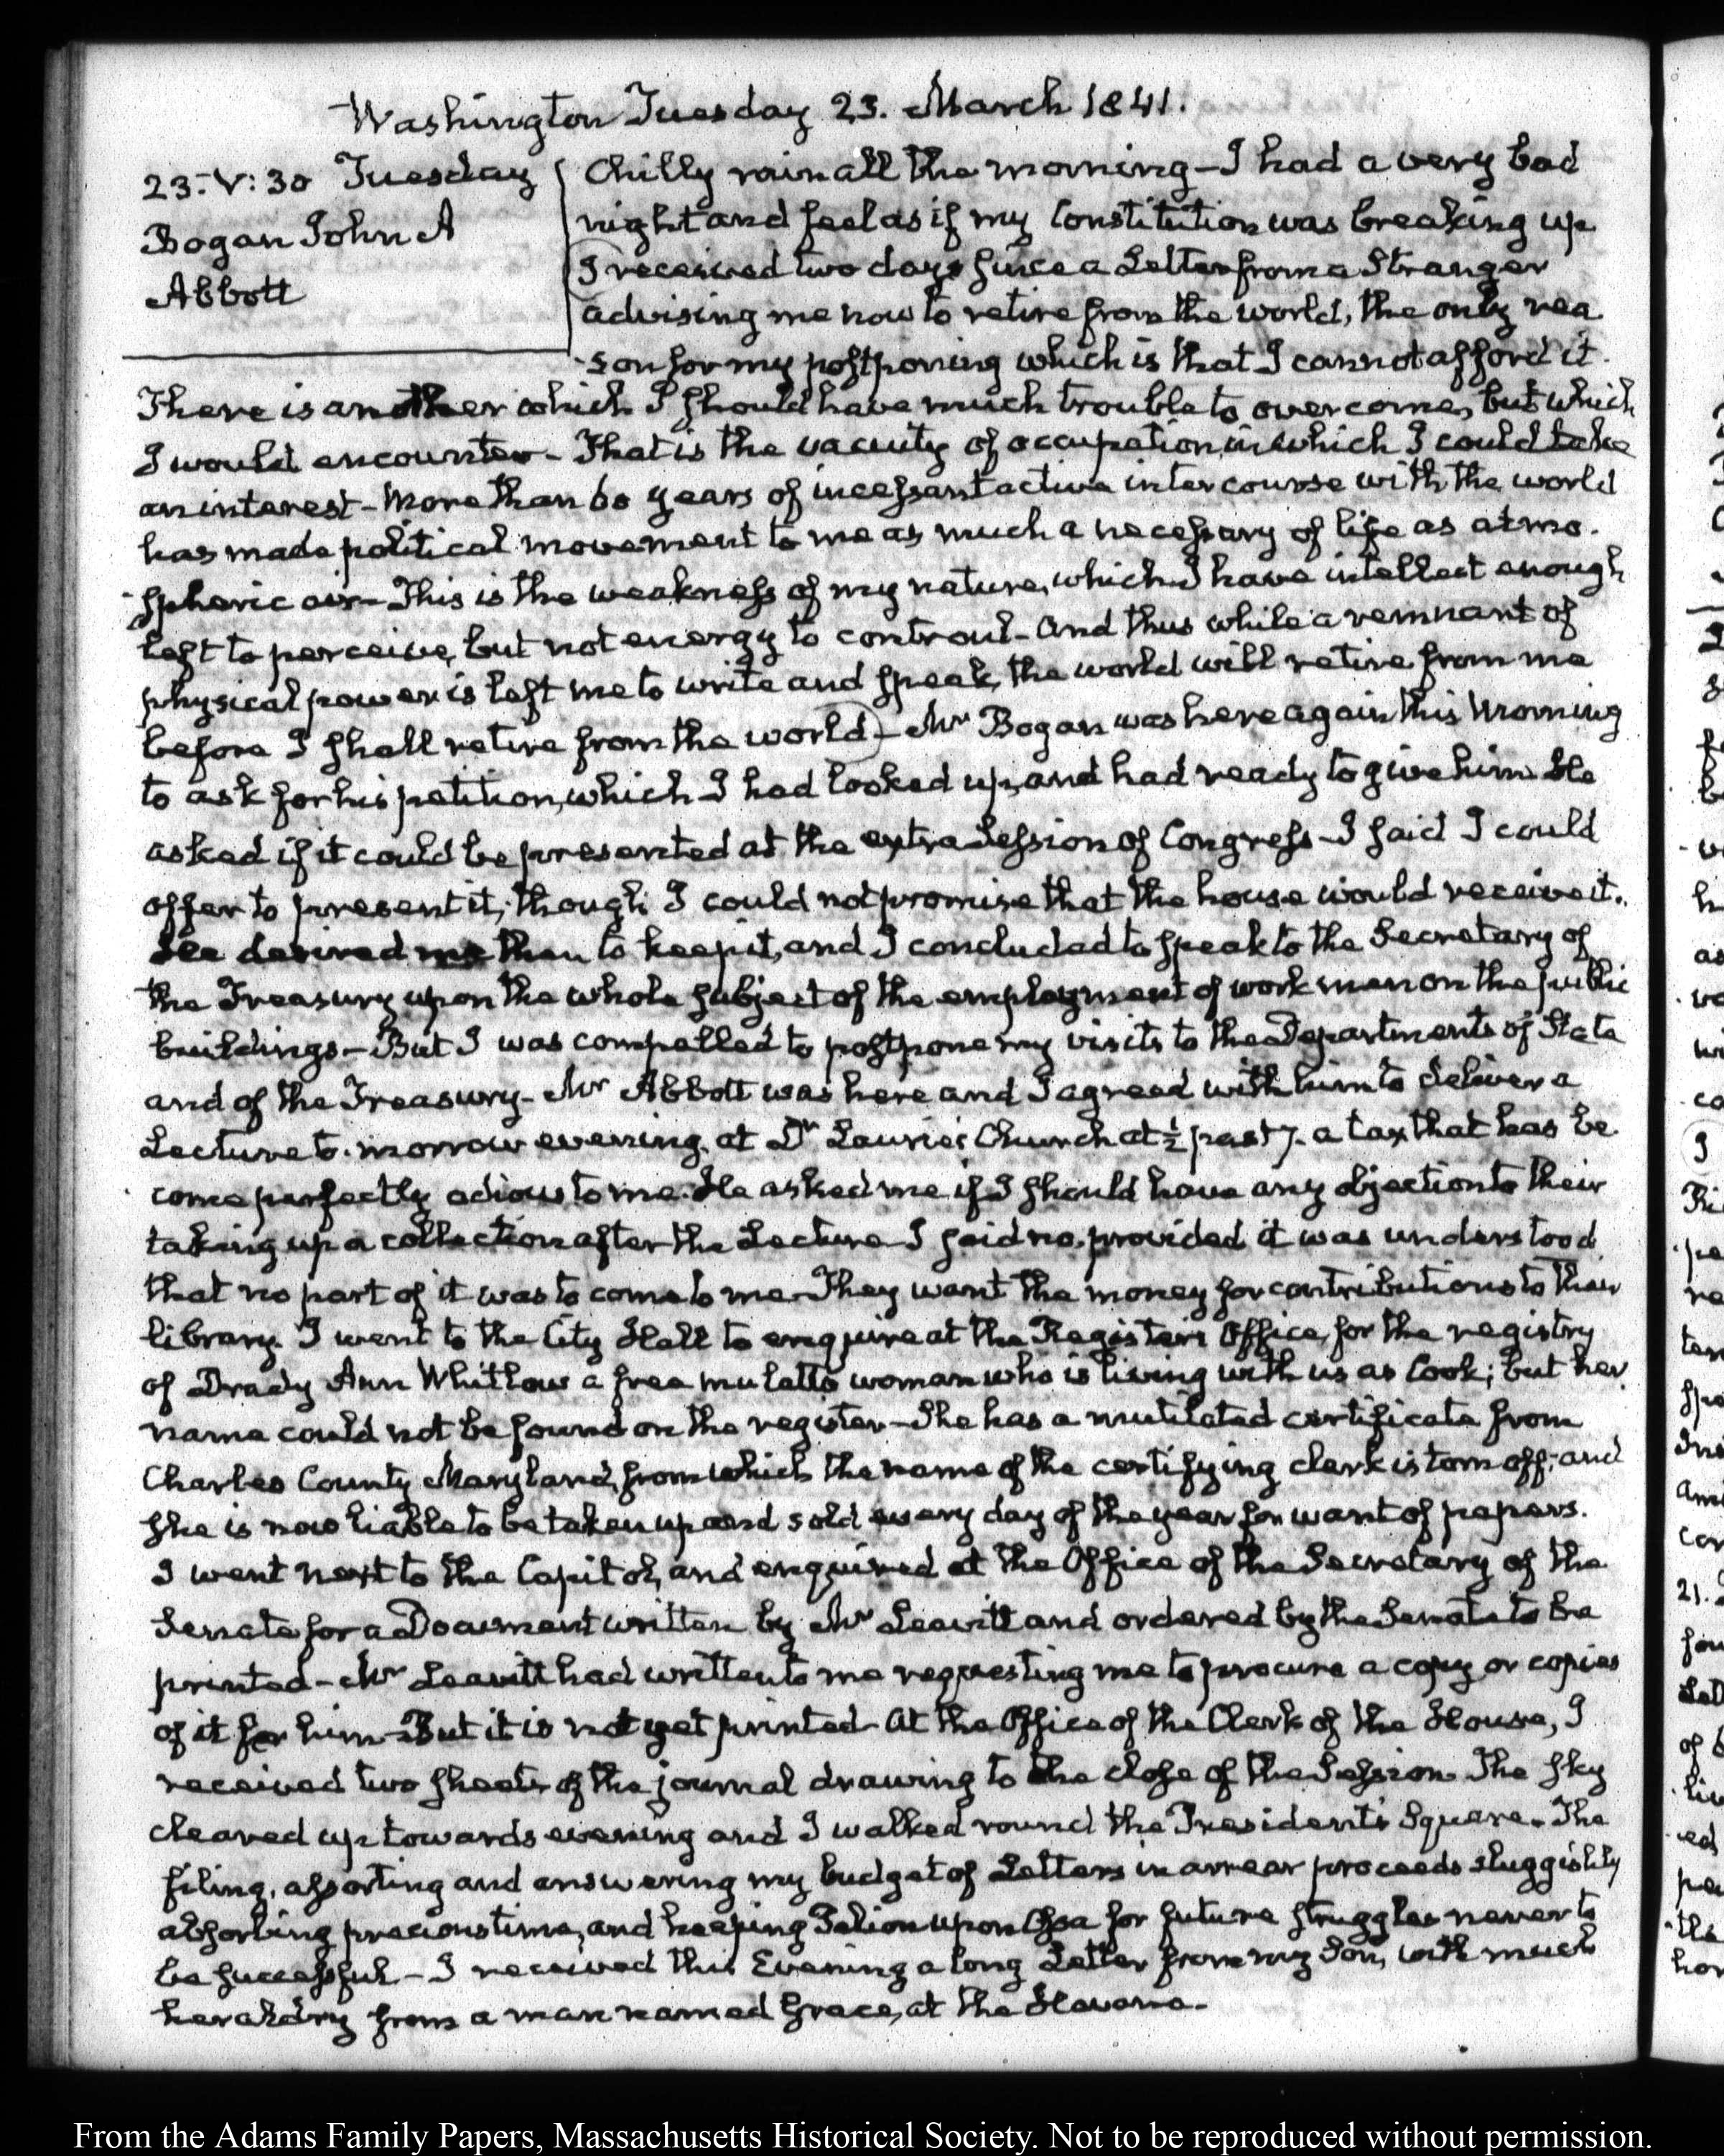 Washington Tuesday 23. March 1841.
23. V: 30 Tuesday
Bogan John A
Abbott
Chilly rain all the morning – I had a very bad
night and feel as if my Constitution was breaking up
I received two days since a Letter from a Stranger
advising me now to retire from the world, the only rea
-son for my postponing which is that I cannot afford it.
There is another which I should have much trouble to overcome, but which
I would encounter – That is the vacuity of occupation, in which I could take
an interest – More than 60 years of incessant active intercourse with the world
has made political movement to me as much a necessary of life as atmo.
-spheric air – This is the weakness of my nature, which I have intellect enough
left to perceive, but not energy to controul – And thus while a remnant of
physical power is left me to write and speak, the world will retire from me
before I shall retire from the world – Mr Bogan was here again this Morning
to ask for his petition, which I had looked up, and had ready to give him. He
asked if it could be presented at the extra Session of Congress – I said I could
offer to present it, though I could not promise that the house would receive it.
He desired me then to keep it, and I concluded to speak to the Secretary of
the Treasury upon the whole subject of the employment of workmen on the public
buildings – But I was compelled to postpone my visits to the Departments of State
and of the Treasury – Mr Abbott was here and I agreed with him to deliver a
Lecture to-morrow evening, at Dr Laurie's Church at ½ past 7. a tax that has be
come perfectly odious to me. He asked me if I should have any objection to their
taking up a collection after the Lecture – I said no, provided it was understood
that no part of it was to come to me – They want the money for contributions to their
library. I went to the City Hall to enquire at the Register's Office, for the registry
of Drady Ann Whitlow a free mulatto woman who is living with us as Cook; but her
name could not be found on the register – She has a mutilated certificate from
Charles County Maryland, from which the name of the certifying clerk is torn off; and
she is now liable to be taken up and sold every day of the year for want of papers.
I went next to the Capitol, and enquired at the Office of the Secretary of the
Senate for a Document written by Mr Leavitt and ordered by the Senate to be
printed – Mr Leavitt had written to me requesting me to procure a copy or copies
of it for him – But it is not yet printed – At the Office of the Clerk of the House, I
received two sheets of the journal drawing to the close of the Session. The sky
cleared up towards evening and I walked round the President's Square – The
filing, assorting and answering my budget of Letters in arrear proceeds sluggishly
absorbing precious time, and heaping Pelion upon Ossa for future struggles never to
be successful – I received this Evening a long Letter from my Son, with much
heraldry from a man named Grace, at the Havana –
From the Adams Family Papers, Massachusetts Historical Society. Not to be reproduced without permission.